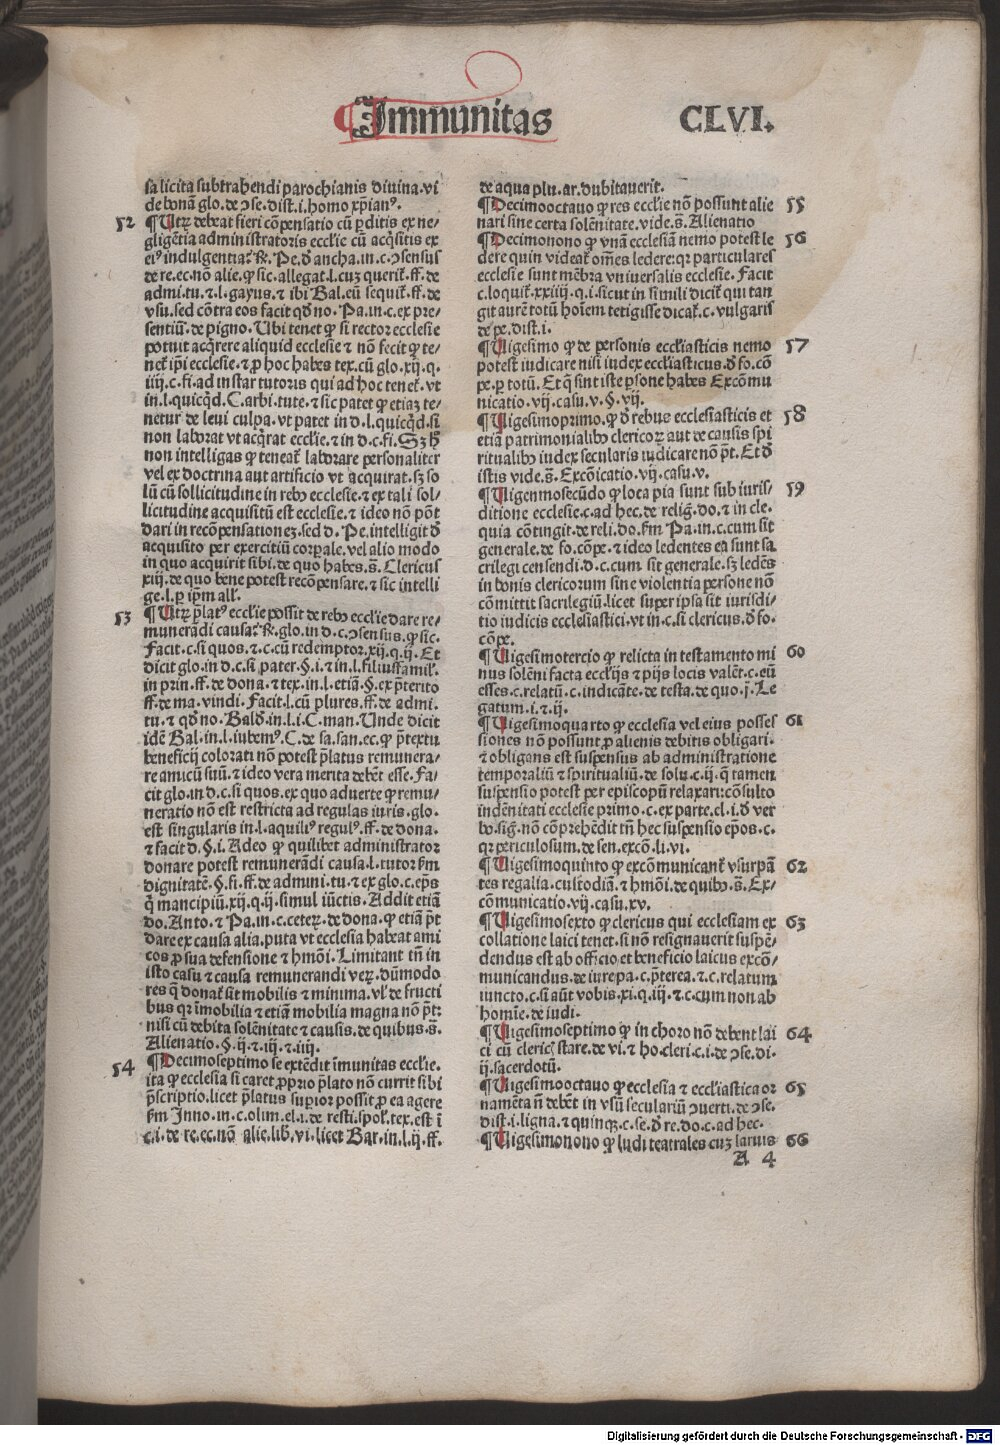 ¶Immunitas CLVI.
sa licita subtrahendi parochianis diuina.vi
de bonā glo.de ɔse.dist.i.homo xp̄ianꝰ.
52 ¶Utrꝝ debeat fieri cōpensatio cū ꝑditis ex ne/
gligētia administratoris eccl'ie cū acq̄sitis ex
eiꝰ indulgentia? R̄. Pe.d̄ ancha.in.c.ɔsensus
de re.ec.nō alie.ꝙ sic.allegat.l.cuꝫ querit̄.ff.de
admi.tu.⁊.l.gayus.⁊ ibi Bal.eū sequit̄.ff.de
vsu.sed cōtra eos facit qd̄ no. Pa.in.c.ex pre/
sentiū.de pigno. Ubi tenet ꝙ si rector ecclesie
potuit acq̄rere aliquid ecclesie ⁊ nō fecit ꝙ te/
net̄ ip̄i ecclesie.⁊ ꝓ hoc habes tex.cū glo.xij.q.
iiij.c.fi.ad instar tutoris qui ad hoc tenet̄.vt
in.l.quicq̄d.C.arbi.tute.⁊ sic patet ꝙ etiaꝫ te/
netur de leui culpa.vt patet in d.l.quicq̄d.si
non laborat vt acq̄rat eccl'ie.⁊ in d.c.fi. Sꝫ h̄
non intelligas ꝙ teneat̄ laborare personaliter
vel ex doctrina aut artificio vt acquirat.sꝫ so
lū cū sollicitudine in rebꝰ ecclesie.⁊ ex tali sol/
licitudine acquisitū est ecclesie.⁊ ideo nō pōt
dari in recōpensationeꝫ.sed d. Pe.intelligit d̄
acquisito per exercitiū corꝑale.vel alio modo
in quo acquirit sibi.de quo habes.s̄. Clericus
xiij.de quo bene potest recōpensare.⁊ sic intelli
ge.l.ꝑ ip̄m all'.
53 ¶Utrꝝ p̄latꝰ eccl'ie possit de rebꝰ eccl'ie dare re/
munerādi causa? R̄.glo.in d.c.ɔsensus.ꝙ sic.
Facit.c.si quos.⁊.c.cū redemptor.xij.q.ij. Et
dicit glo.in d.c.si pater.§.i.⁊ in.l.filiusfamil'.
in prin.ff.de dona.⁊ tex.in.l.etiā.§.ex p̄terito
ff.de ma.vindi. Facit.l.cū plures.ff.de admi.
tu.⁊ qd̄ no. Bald̄.in.l.i.C.man. Unde dicit
idē Bal.in.l.iubemꝰ.C.de sa.san.ec.ꝙ p̄textu
beneficij colorati nō potest p̄latus remunera/
re amicū suū.⁊ ideo vera merita debēt esse. Fa/
cit glo.in d.c.si quos.ex quo aduerte ꝙ remu/
neratio nō est restricta ad regulas iuris.glo.
est singularis in.l.aquiliꝰ regulꝰ.ff.de dona.
⁊ facit d.§.i. Adeo ꝙ quilibet administrator
donare potest remunerādi causa.l.tutor s̄m
dignitatē.§.fi.ff.de admini.tu.⁊ ex glo.c.ep̄s
q̄ mancipiū.xij.q.ij.simul iūctis. Addit etiā
do. Anto.⁊ Pa.in.c.ceterꝝ.de dona.ꝙ etiā p̄t
dare ex causa alia.puta vt ecclesia habeat ami
cos ꝓ sua defensione ⁊ hmōi. Limitant tn̄ in
isto casu ⁊ causa remunerandi veꝝ.dūmodo
res q̄ donat̄ sit mobilis ⁊ minima.vl' de fructi
bus qr imobilia ⁊ etiā mobilia magna nō p̄t:
nisi cū debita solēnitate ⁊ causis.de quibus.s̄.
Alienatio.§.ij.⁊.iij.⁊.iiij.
54 ¶Decimoseptimo se extēdit īmunitas eccl'ie.
ita ꝙ ecclesia si caret ꝓprio p̄lato nō currit sibi
p̄scriptio.licet p̄latus supior possit ꝓ ea agere
s̄m Inno.in.c.olim.el.i.de resti.spol'.tex.est ī
c.i.de re.ec.nō alie.lib.vi.licet Bar.in.l.ij.ff.
de aqua plu.ar.dubitauerit.
¶Decimooctauo ꝙ res eccl'ie nō possunt alie 55
nari sine certa solēnitate.vide.s̄. Alienatio
¶Decimonono ꝙ vnā ecclesiā nemo potest le 56
dere quin videat̄ om̄es ledere:qr particulares
ecclesie sunt mēbra vniuersalis ecclesie. Facit
c.loquit̄.xxiiij.q.i.sicut in simili dicit̄ qui tan
git aurē totū hoīem tetigisse dicat̄.c.vulgaris
de pe.dist.i.
¶Uigesimo ꝙ de personis eccl'iasticis nemo 57
potest iudicare nisi iudex eccl'iasticus.d̄ fo.cō
pe.ꝑ totū. Et q̄ sint iste ꝑsone habes Excōmu
nicatio.vij.casu.v.§.vij.
¶Uigesimoprimo.ꝙ d̄ rebus ecclesiasticis et 58
etiā patrimonialibꝰ clericoꝝ aut de causis spi
ritualibꝰ iudex secularis iudicare nō p̄t. Et d̄
istis vide.s̄. Excōicatio.vij.casu.v.
¶Uigenmosecūdo ꝙ loca pia sunt sub iuris/ 59
ditione ecclesie.c.ad hec.de reliḡ.do.⁊ in cle.
quia cōtingit.de reli.do.s̄m Pa.in.c.cum sit
generale.de fo.cōpe.⁊ ideo ledentes ea sunt sa
crilegi censendi.d.c.cum sit generale.sꝫ ledēs
in bonis clericorum sine violentia persone nō
cōmittit sacrilegiū.licet super ipsa sit iurisdi/
tio iudicis ecclesiastici.vt in.c.si clericus.d̄ fo.
cōpe.
¶Uigesimotercio ꝙ relicta in testamento mi 60
nus solēni facta eccl'ijs ⁊ pijs locis valēt.c.eū
esses.c.relatū.c.indicāte.de testa.de quo.j. Le
gatum.i.⁊.ij.
¶Uigesimoquarto ꝙ ecclesia vel eius posses 61
siones nō possunt ꝓ alienis debitis obligari.
⁊ obligans est suspensus ab administratione
temporaliū ⁊ spiritualiū.de solu.c.ij.q̄ tamen
suspensio potest per episcopū relaxari:cōsulto
indēnitati ecclesie primo.c.ex parte.el.i.d̄ ver
bo.siḡ.nō cōprehēdit tn̄ hec suspensio ep̄os.c.
qr periculosum.de sen.excō.li.vi.
¶Uigesimoquinto ꝙ excōmunicant̄ vsurpā 62
tes regalia.custodiā.⁊ hmōi.de quibꝰ.s̄. Ex/
cōmunicatio.vij.casu.xv.
¶Uigesimosexto ꝙ clericus qui ecclesiam ex 63
collatione laici tenet.si nō resignauerit suspē/
dendus est ab officio:et beneficio laicus excō/
municandus.de iurepa.c.p̄terea.⁊.c.relatum
iuncto.c.si aūt vobis.xi.q.iij.⁊.c.cum non ab
homīe.de iudi.
¶Uigesimoseptimo ꝙ in choro nō debent lai 64
ci cū cleric̄ stare.de vi.⁊ ho.cleri.c.i.de ɔse.di.
ij.sacerdotū.
¶Uigesimooctauo ꝙ ecclesia ⁊ eccl'iastica or 65
namēta n̄ debēt in vsū seculariū ɔuerti.de ɔse.
dist.i.ligna.⁊ quinqꝫ.c.se.d̄ re.do.c.ad hec.
¶Uigesimonono ꝙ ludi teatrales cuꝫ laruis 66
A 4
Digitalisierung gefördert durch die Deutsche Forschungsgemeinschaft - DFG